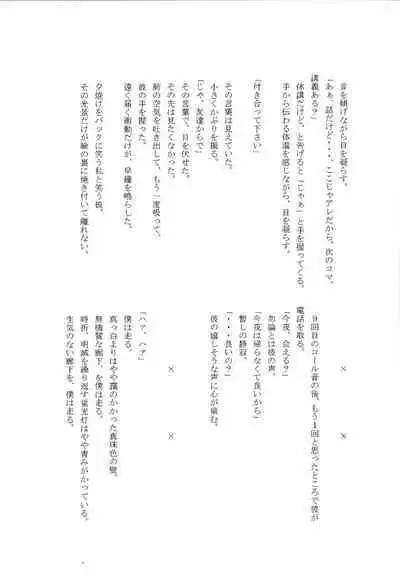 首を傾げながら目を凝らす。
「あぁ、話だけど・・・、ここじゃアレだから、次のコマ、
講義ある?」
休講だけど、と告げると「じゃぁ」と手を握ってくる。
手から伝わる体温を感じながら、目を凝らす。
「付き合って下さい」
その言葉は見えていた。
小さくかぶりを振る。
「じゃ、友達からで」
その言葉で、目を伏せた。
その先は見たくなかった。
肺の空気を吐き出して、もう一度吸って、
彼の手を握った。
遠く届く衝動だけが、早鐘を鳴らした。
夕焼けをバックに笑う私と笑う彼、
その光景だけが瞼の裏に焼き付いて離れない。
× ×
9回目のコール音の後、もう1回と思ったところで彼が
電話を取る。
「今夜、会える?」
勿論とは彼の声。
「今夜は帰らなくて良いから」
暫しの静寂、
「・・・良いの?」
彼の嬉しそうな声に心が痛む。
× ×
「ハァ、ハア」
僕は走る。
真っ白よりはやや霞のかかった真珠色の壁。
無機質な廊下を、僕は走る。
時折、明滅を繰り返す蛍光灯はやや青みがかっている。
生気のない廊下を、僕は走る。